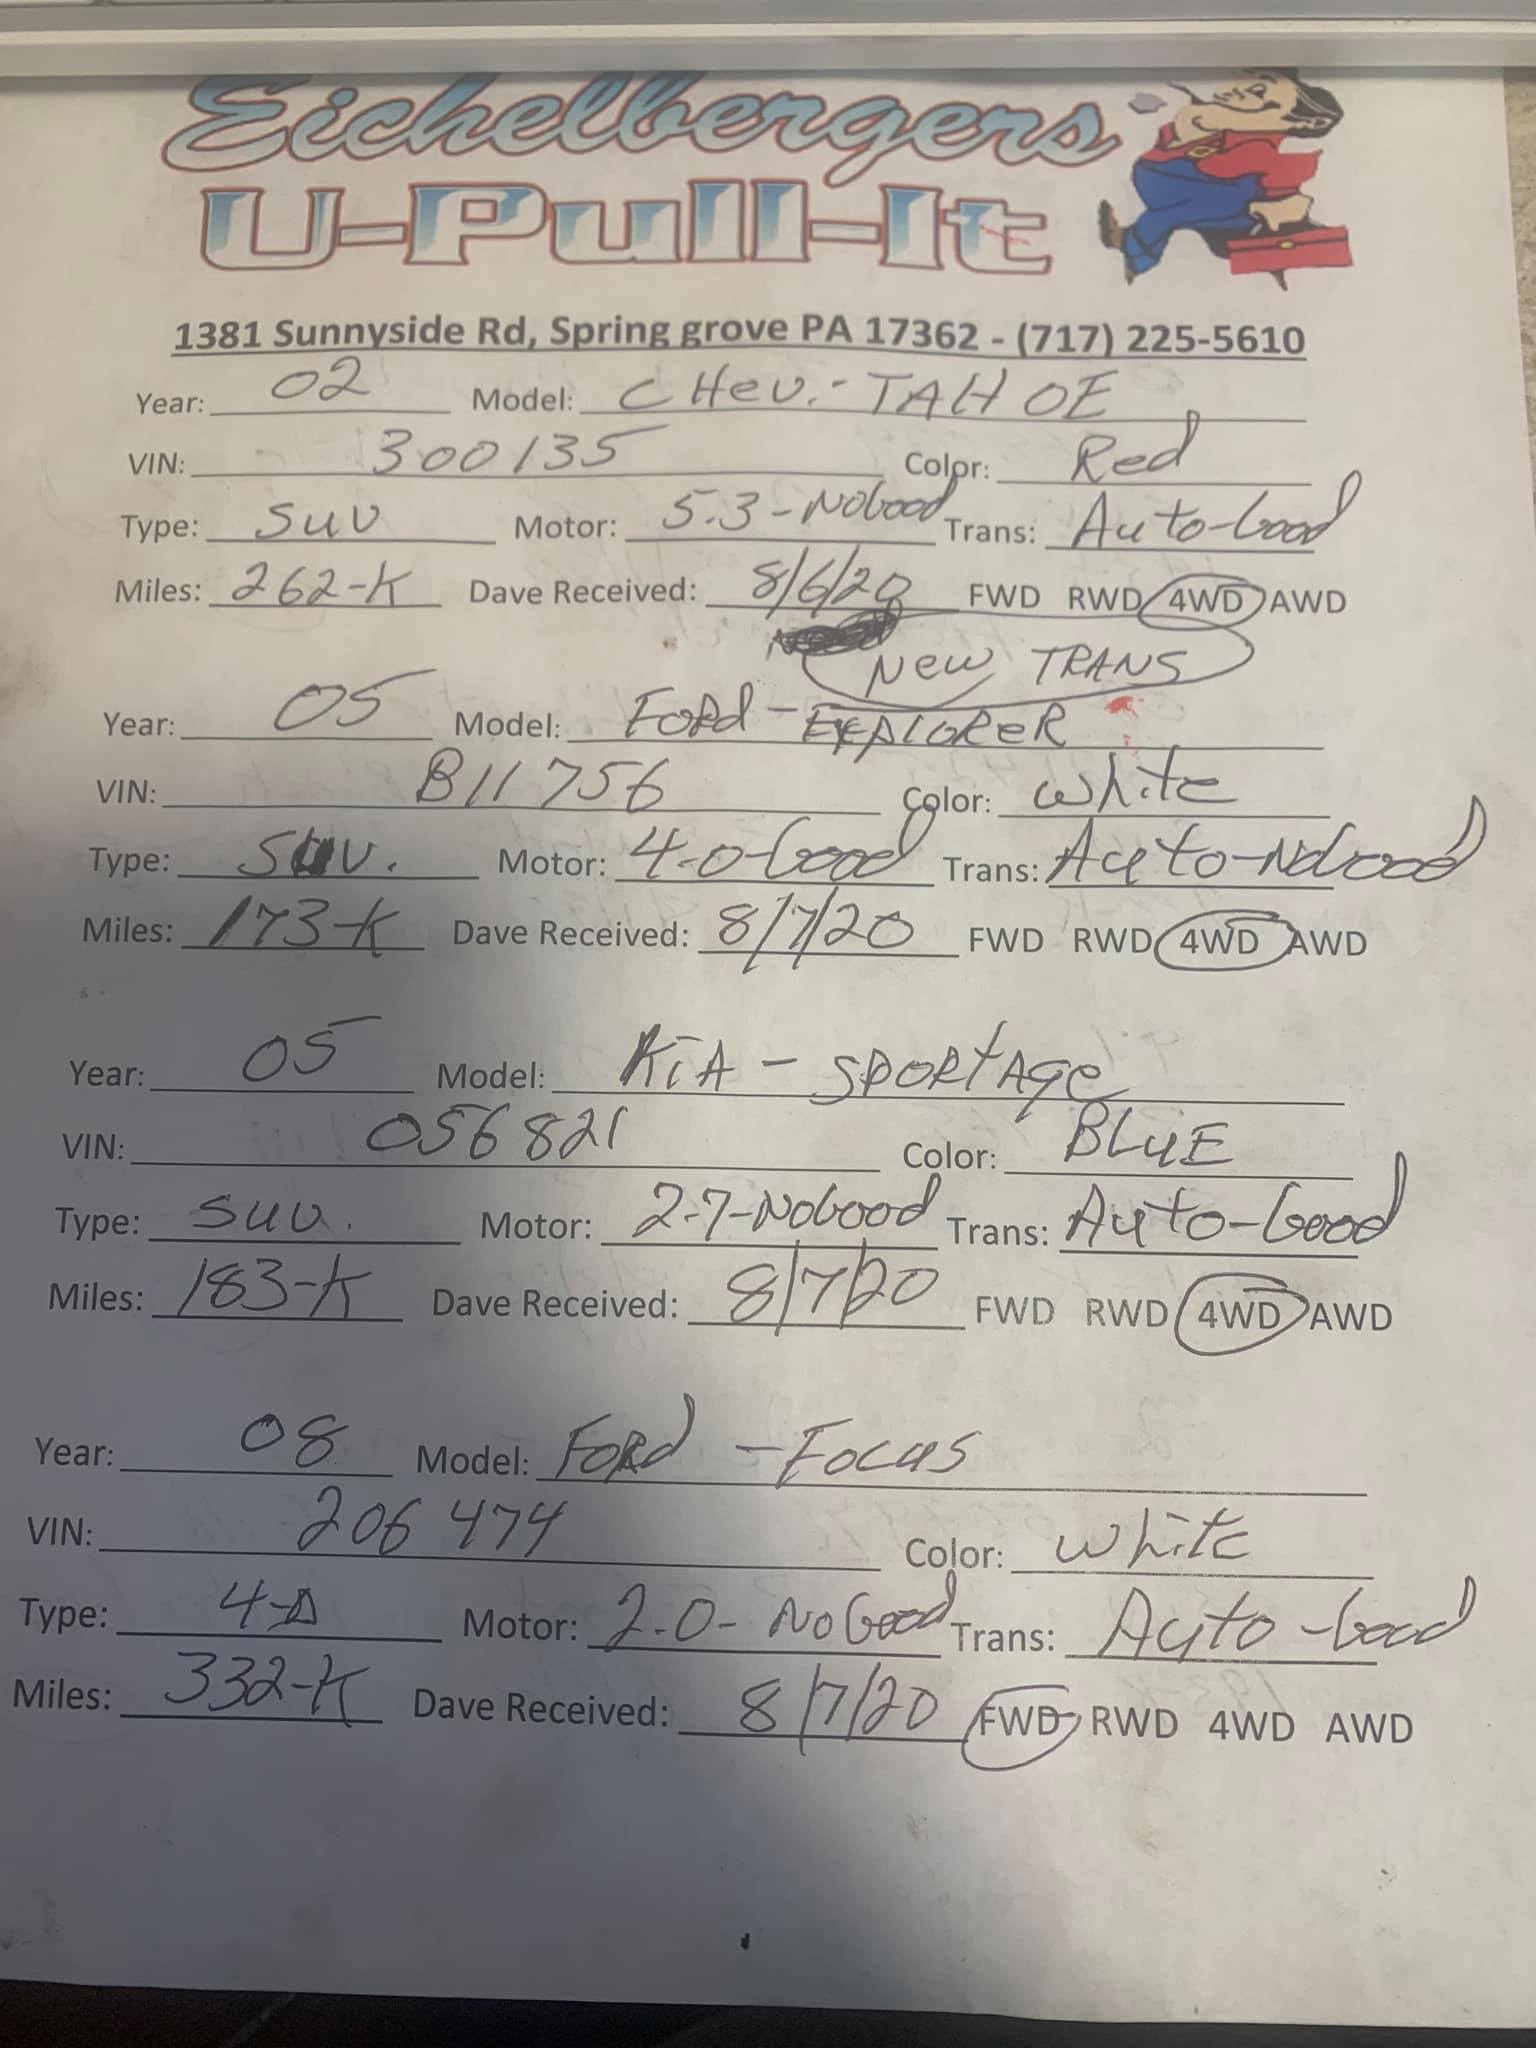 Eichelbergers
U-Pull-It
1381 Sunnyside Rd, Spring grove PA 17362 - (717) 225-5610
Year: 02 Model: CHev.- TAHOE
VIN: 300135 Color: Red
Type: SUV Motor: 5.3-NoGood Trans: Auto-Good
Miles: 262-K Dave Received: 8/6/20 FWD RWD 4WD AWD
New TRANS
Year: 05 Model: FORd - EXPLOReR
VIN: B11756 Color: White
Type: SUV. Motor: 4.0-Good Trans: Auto-NoGood
Miles: 173-K Dave Received: 8/7/20 FWD RWD 4WD AWD
Year: 05 Model: KiA - SPORtAge
VIN: 056821 Color: BLuE
Type: SUV. Motor: 2.7-NoGood Trans: Auto-Good
Miles: 183-K Dave Received: 8/7/20 FWD RWD 4WD AWD
Year: 08 Model: FORd - Focus
VIN: 206474 Color: White
Type: 4-D Motor: 2.0- NoGood Trans: Auto-Good
Miles: 332-K Dave Received: 8/7/20 FWD RWD 4WD AWD